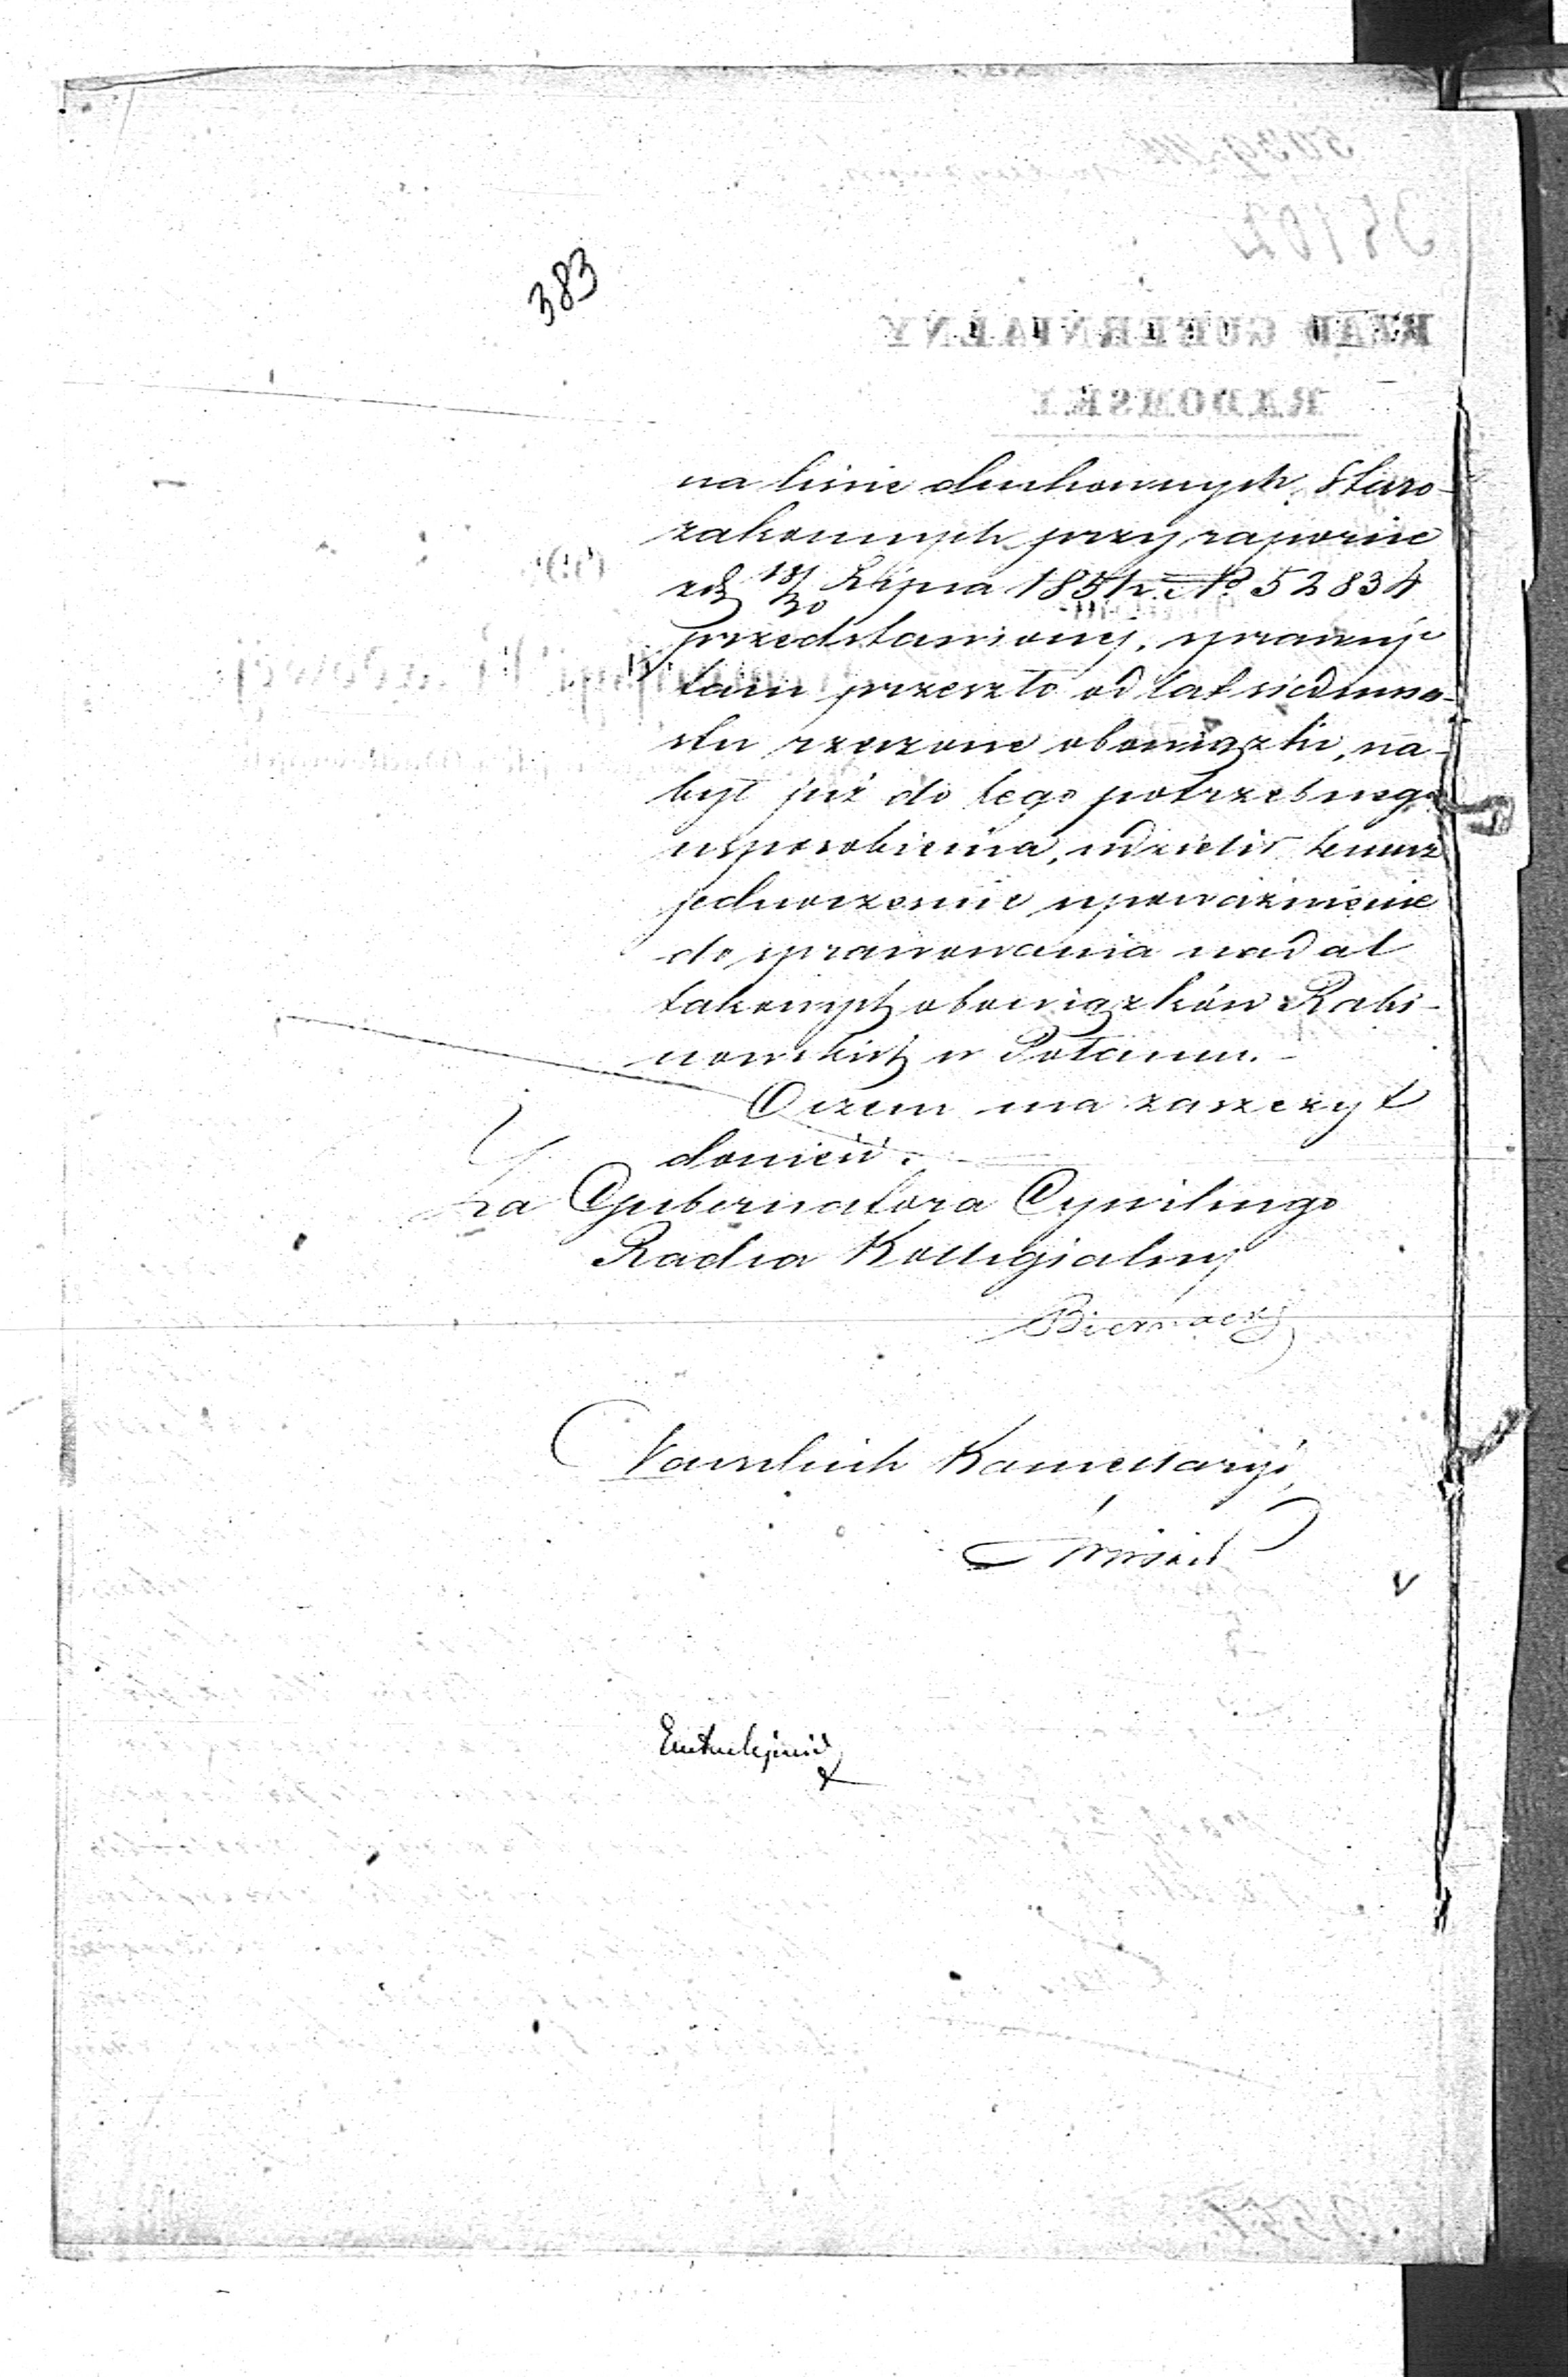 383
na liście duchownych Staro-
zakonnych przy raporcie
z d. 18/30 Lipca 1851 r. No 52834
przedstawionej, sprawuje
tam przeszło od lat siedmna-
stu rzeczone obowiązki, na-
był już do tego potrzebnego
usposobienia, udzielił temuż
jednocześnie upoważnienie
do sprawowania nadal
takowych obowiązków Rabi-
nowskich w Połańcu.-
O czem ma zaszczyt
donieść.
za Gubernatora Cywilnego
Radca Kollegialny
Biernacki
Naczelnik Kancellaryi,